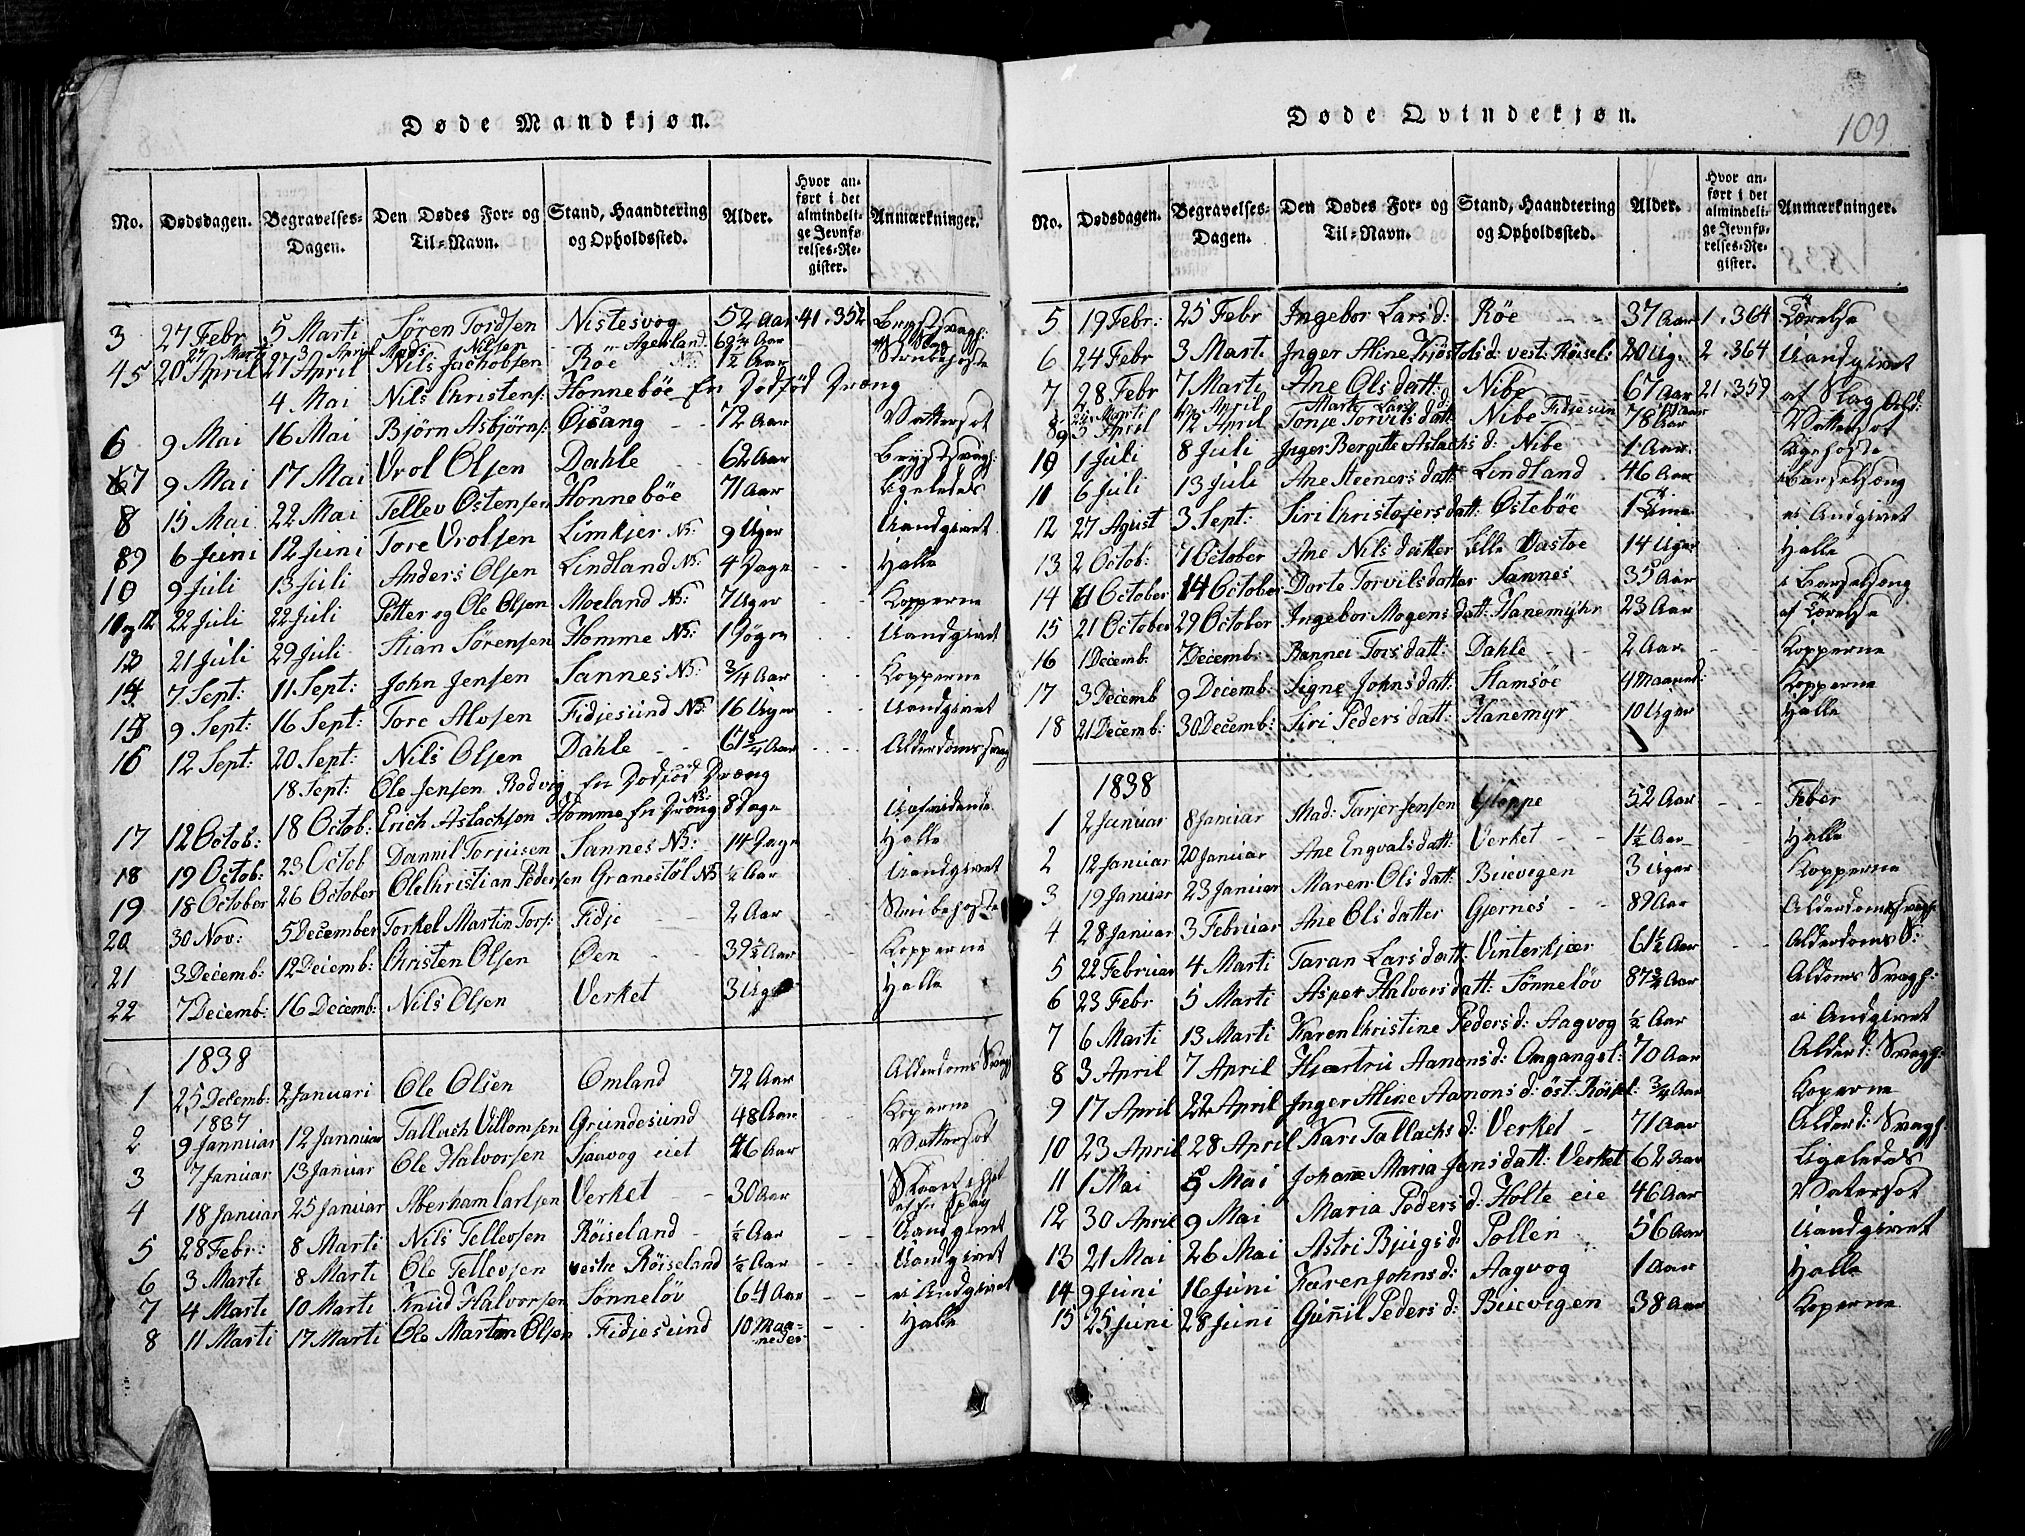 Døde Mandkjøn.
No. Dødsdagen. Begravelses-Dagen. Den Dødes For- og Til-Navn. Stand, Haandtering og Opholdssted. Alder. Hvor anført i det almindelige Jevnførelses-Register. Anmærkninger.
3 27 Febr 5 Marti Søren Tordsen Nistesvog 52 Aar 41.352 Brystsvagh:
27 Marti 3 April Mads Nilsen Agerland 69 3/4 Aar af Slag
4 5 20 April 27 April Nils Jachobsen Røe NB: 1/2 Aar Strubehoste
4 Mai Nils Christens: Honnebøe En Dødfød Dræng
6 9 Mai Bjørn Asbjørns: Øisang 72 Aar Vattersot
16 Mai
7 9 Mai 17 Mai Vrol Olsen Dahle 62 Aar Brystsvagh:
8 15 Mai 22 Mai Tellev Østensen Honnebøe 71 Aar Ligeledes
9 6 Juni 12 Juni Tore Vrolsen Limkjer NB: 9 Uger Uandgivet
10 9 Juli 13 Juli Anders Olsen Lindland NB: 4 Dage Halle
11 og 12 22 Juli 22 Juli Petter og Ole Olsen Moeland NB: 7 Uger Kopperne
13 21 Juli 29 Juli Stian Sørensen Homme NB: 1 Døgn Uandgivet
14 7 Sept: 11 Sept: John Jensen Sannes NB: 3/4 Aar Kopperne
15 9 Sept: 16 Sept: Tore Alvsen Fidjesund NB: 16 Uger Uandgivet
16 12 Sept: 20 Sept: Nils Olsen Dahle 67 3/4 Aar Alderdomssvag
18 Sept: Ole Jensen Rodvig En Dødfød Dræng
17 12 Octob: 18 Octob: Erich Aslachsen Homme En Dræng NB: 8 Dage
18 19 Octob: 23 Octob Dannil Torjusen Sannes NB: 14 Dage Halle
19 18 October 26 October Ole Christian Pedersen Granestøl NB 1/4 Aar Uandgivet
20 30 Nov: 5 December Torkel Martin Tors: Fidje 2 Aar Strubehoste
21 3 Decemb: 12 Decemb: Christen Olsen Øen 39 1/2 Aar Kopperne
22 7 Decemb: 16 Decemb: Nils Olsen Verket 3 Uger Halle
1838
1 25 Decemb: 1837 2 Januari Ole Olsen Omland 72 Aar Alderdoms Svagh
2 9 Januuar 12 Januuar Tallach Villomsen Grundesund 48 Aar Koperne
3 7 Januar 13 Januar Ole Halvorsen Skaavog eiet 46 Aar Vattersot
4 18 Januar 25 Januar Aberham Carlsen Verket 30 Aar
5 28 Febr: 8 Marti Nils Tellevsen Røiseland 1/2 Aar Uandgivet
6 3 Marti 8 Marti Ole Tellevsen vestre Røiseland 1/2 Aar Uandgivet
7 4 Marti 10 Marti Knud Halvorsen Sønneløv 64 Aar ei Andgivet
8 11 Marti 17 Marti Ole Martin Olsen Fidjesund 10 Maaneder Halle
Døde Qvindekjøn.
109
No. Dødsdagen. Begravelses-Dagen. Den Dødes For- og Til-Navn. Stand, Haandtering og Opholdssted. Alder. Hvor anført i det almindelige Jevnførelses-Register. Anmærkninger.
5 19 Febr: 25 Febr Ingebor Larsd: Røe 37 Aar 1.364 Tærelse
6 24 Febr 3 Marti Inger Aline Trjøstolsd: vest: Røisel: 20 Ug: 2.364 Uandgivet
7 28 Febr 7 Marti Ane Olsdatt: Nibe 67 Aar 21.359 af Slag
8 Marti April Marte Larsd: Fidjesund Aar Ald:
9 5 April 12 April Tonje Torvilsdatt: Nibe 78 Aar Vattersot
10 1 Juli 8 Juli Inger Bergitte Aslachsd: Nibe 1 Aar Kighoste
11 6 Juli 13 Juli Ane Steenersdatt: Lindland 46 Aar i Barselsæng
12 27 Agust 3 Sept: Siri Christofersdatt: Østebøe 1 Time ei Andgivet
13 2 Octob: 7 October Ane Nilsdatter Lille Vastøe 14 Uger Halle
14 6 October 14 October Dorte Torvilsdatter Sannes 35 Aar i Barselsæng
15 21 October 29 October Ingebor Mogensdatt: Hanemyhr 23 Aar af Tærelse
16 1 Decemb. 7 Decemb: Rannei Torsdatt: Dahle 2 Aar Kopperne
17 3 Decemb 9 Decemb: Signe Johnsdatt: Stamsøe 4 Maaned: Kopperne
18 21 Decemb: 30 Decemb: Siri Pedersdatt: Hanemyr 10 Uger Halle
1838
1 2 Januar 8 Januar Mad: Tarjer Jensen Gloppe 52 Aar Feber
2 12 Januar 20 Januar Ane Engvalsdatt: Verket 1 1/2 Aar Halle
3 19 Januar 23 Januar Maren Olsdatt: Buevigen 3 Uger Kopperne
4 28 Januar 3 Februar Ane Olsdatter Gjernes 89 Aar Alderdomssvagh
5 22 Februar 4 Marti Taran Larsdatt: Vinterkjær 61 1/2 Aar Alderdoms S:
6 23 Febr 5 Marti Asper Halvorsdatt: Sønneløv 87 3/4 Aar Aldoms Svagh:
7 6 Marti 13 Marti Karen Christine Pedersd: Aagvog 1/2 Aar ei Andgivet
8 3 April 7 April Hjærtru Aanonsd: Omgangst: 70 Aar Alderd: Svagh:
9 17 April 22 April Inger Aline Aanonsd: öst: Röisel: 3/4 Aar Koperne
10 23 April 28 April Kari Tallachsd: Verket 71 Aar Alderd: Svagh:
11 1 Mai 5 Mai Johanne Maria Jensdatt: Verket 62 Aar Ligeledes
12 30 April 9 Mai Maria Pedersd: Holte eie 46 Aar Vatersot
13 21 Mai 26 Mai Astri Bjugsd: Pollen 56 Aar Uandgivet
14 9 Juni 16 Juni Karen Johnsd: Aagvog 1 Aar Halle
15 25 Juni 28 Juni Gunnil Pedersd: Buevigen 38 Aar Koperne